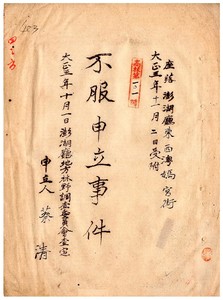 座落澎湖廳東西澳媽宮街
大正三年十一月二日受附
不服申立事件
大正三年十月一日澎湖廳地方林野調查委員會查定
申立人 蔡清